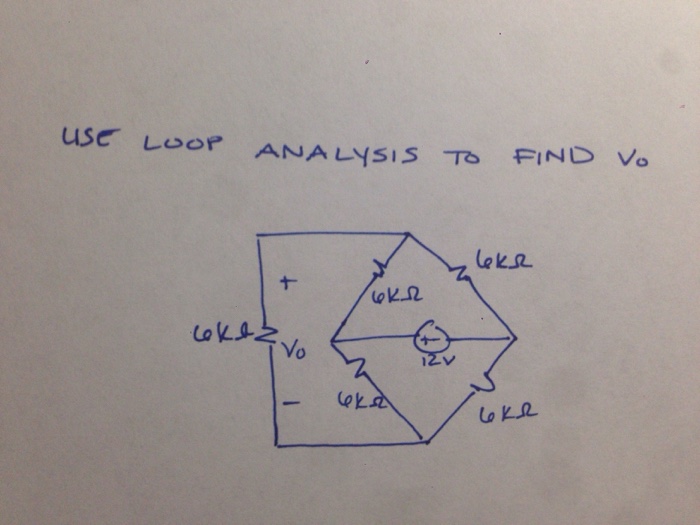 USE LOOP ANALYSIS TO FIND Vo
6KΩ
+
6KΩ
6KΩ Vo
+-
12V
6KΩ
-
6KΩ